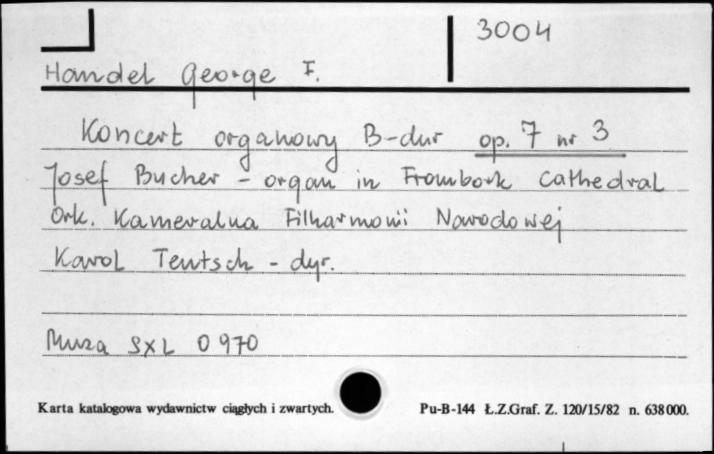 3004
Handel George F.
Koncert organowy B-dur op. 7 nr 3
Josef Bucher - organ in Frombork Cathedral
Ork. Kameralna Filharmonii Narodowej
Karol Teutsch - dyr.
Muza SXL 0970
Karta katalogowa wydawnictw ciągłych i zwartych. Pu-B-144 Ł.Z.Graf. Z. 120/15/82 n. 638000.